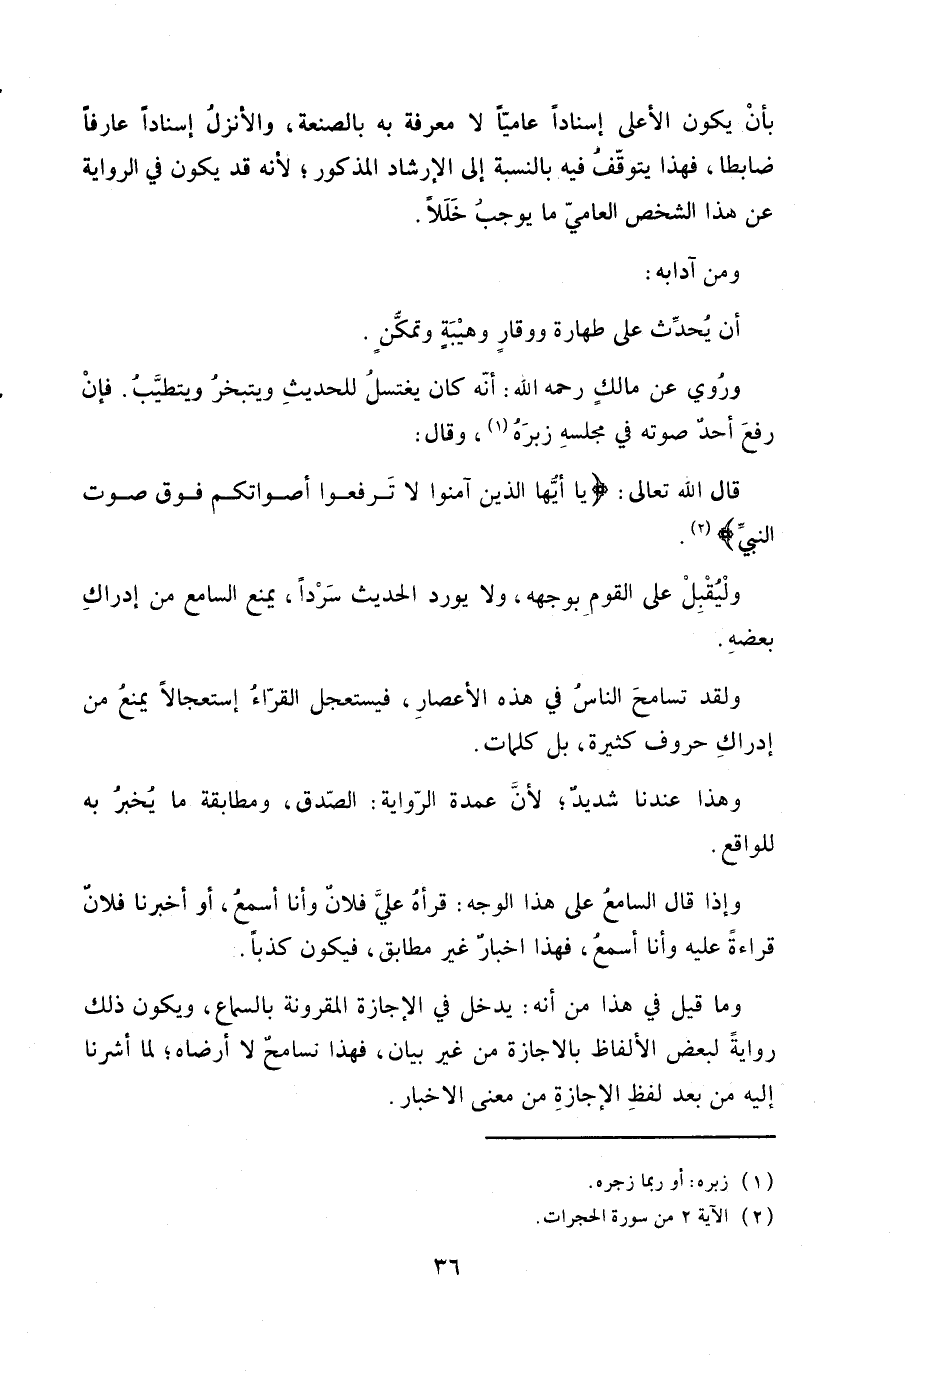 بأنْ يكون الأعلى إسناداً عاميّاً لا معرفة به بالصنعة، والأنزلُ إسناداً عارفاً
ضابطا، فهذا يتوقّفُ فيه بالنسبة إلى الإرشاد المذكور؛ لأنه قد يكون في الرواية
عن هذا الشخص العاميّ ما يوجبُ خَلَلاً.
ومن آدابه:
أن يُحدِّث على طهارة ووقارٍ وهيْبَةٍ وتمكُّنٍ.
ورُوي عن مالكٍ رحمه الله: أنّه كان يغتسلُ للحديثِ ويتبخرُ ويتطيَّبُ. فإنْ
رفعَ أحدٌ صوته في مجلسهِ زبرَهُ(١)، وقال:
قال الله تعالى: ﴿يا أيُّها الذين آمنوا لا تَرفعوا أصواتكم فوق صوت
النبيِّ﴾(٢).
ولْيُقْبِلْ على القومِ بوجهه، ولا يورد الحديث سَرْداً، يمنع السامع من إدراكِ
بعضهِ.
ولقد تسامحَ الناسُ في هذه الأعصارِ، فيستعجل القرّاءُ إستعجالاً يمنعُ من
إدراكِ حروف كثيرة، بل كلمات.
وهذا عندنا شديدٌ؛ لأنَّ عمدة الرّواية: الصّدق، ومطابقة ما يُخبرُ به
للواقع.
وإذا قال السامعُ على هذا الوجه: قرأهُ عليَّ فلانٌ وأنا أسمعُ، أو أخبرنا فلانٌ
قراءةً عليه وأنا أسمعُ، فهذا اخبارٌ غير مطابق، فيكون كذباً.
وما قيل في هذا من أنه: يدخل في الإجازة المقرونة بالسماع، ويكون ذلك
روايةً لبعض الألفاظ بالاجازة من غير بيان، فهذا تسامحٌ لا أرضاه؛ لما أشرنا
إليه من بعد لفظِ الإجازةِ من معنى الاخبار.
(١) زبره: أو ربما زجره.
(٢) الآية ٢ من سورة الحجرات.
٣٦